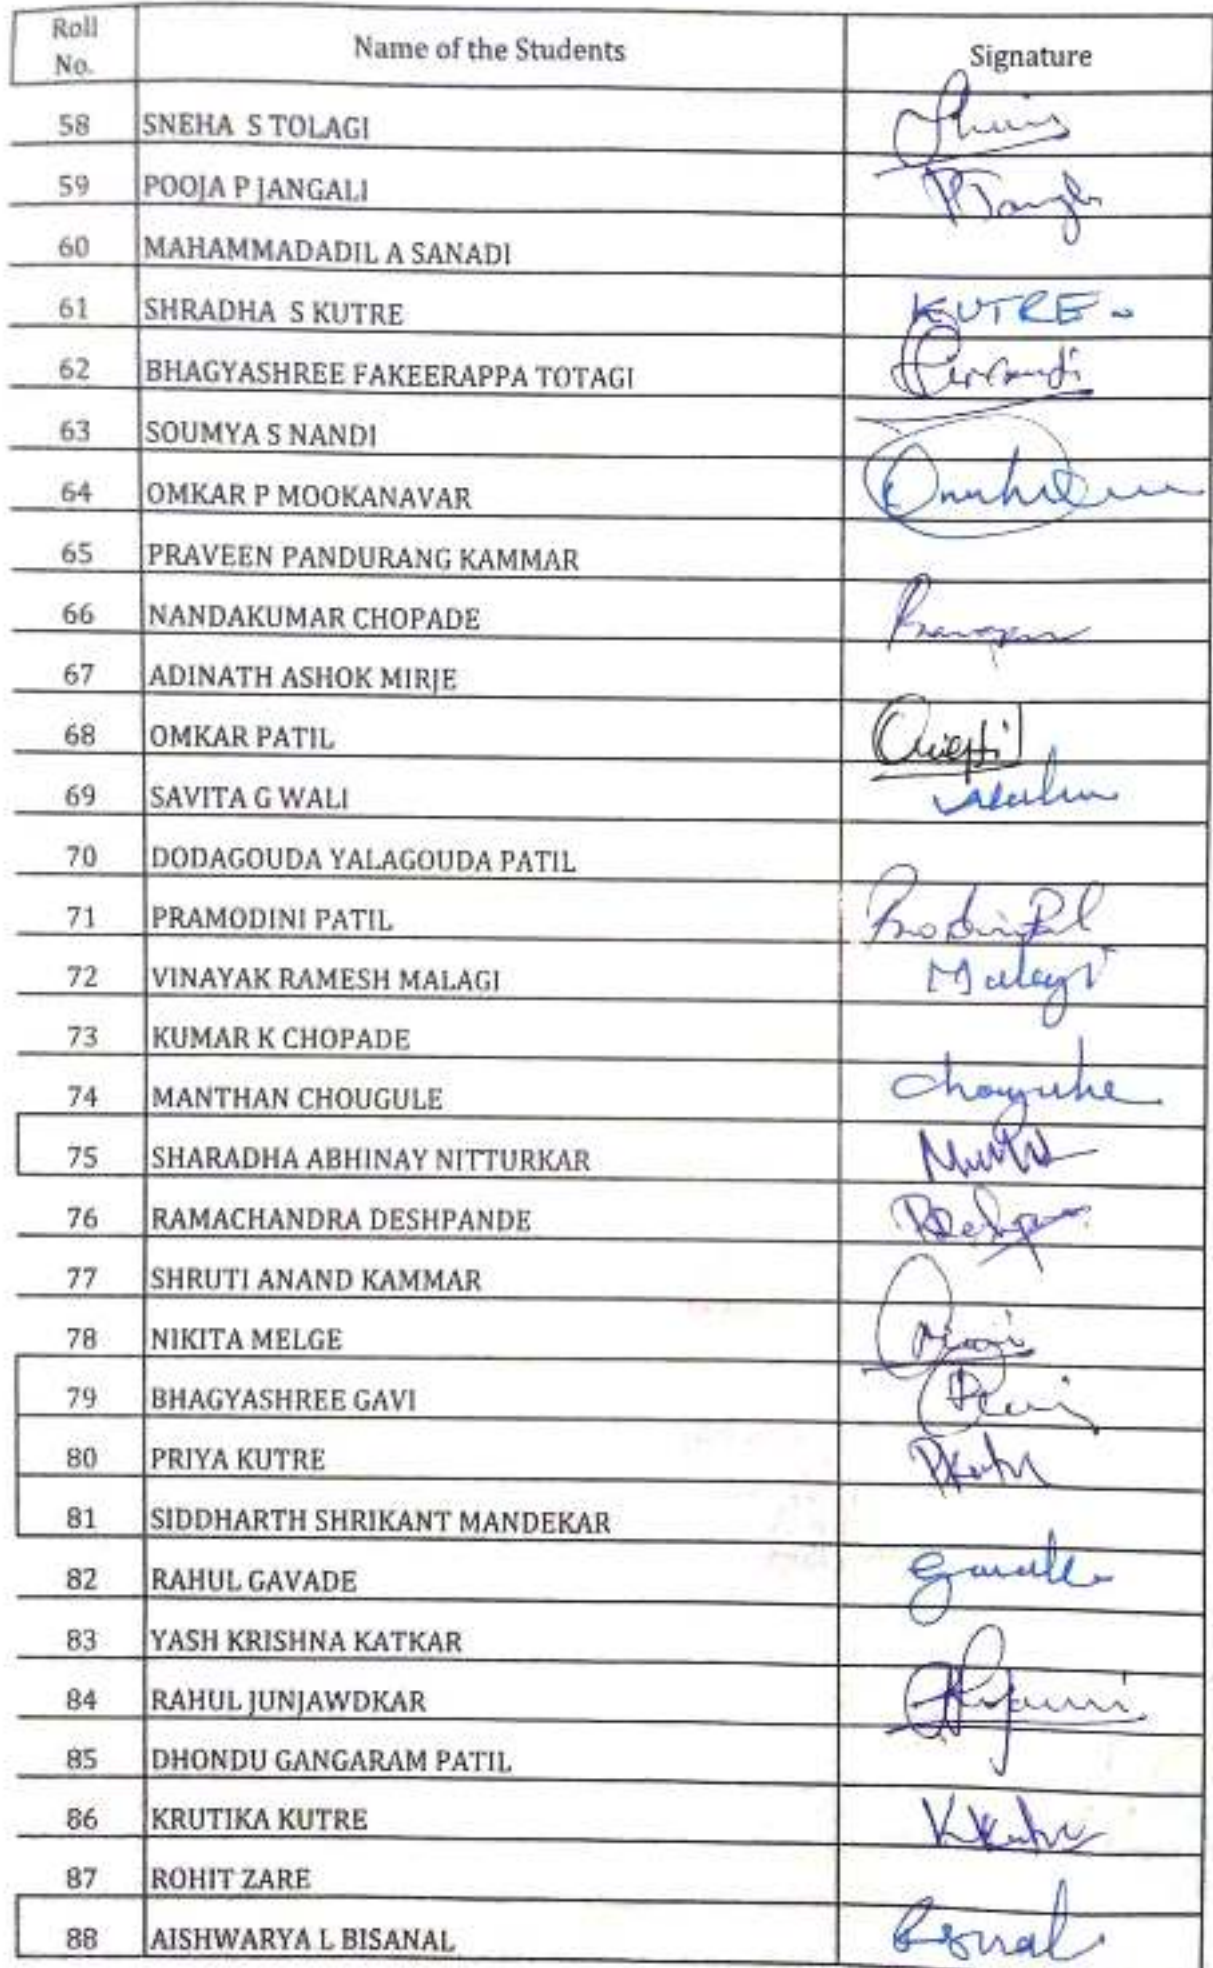 Roll No. Name of the Students Signature
58 SNEHA S TOLAGI
59 POOJA P JANGALI
60 MAHAMMADADIL A SANADI
61 SHRADHA S KUTRE KUTRE
62 BHAGYASHREE FAKEERAPPA TOTAGI
63 SOUMYA S NANDI
64 OMKAR P MOOKANAVAR
65 PRAVEEN PANDURANG KAMMAR
66 NANDAKUMAR CHOPADE
67 ADINATH ASHOK MIRJE
68 OMKAR PATIL
69 SAVITA G WALI
70 DODAGOUDA YALAGOUDA PATIL
71 PRAMODINI PATIL
72 VINAYAK RAMESH MALAGI Malagi
73 KUMAR K CHOPADE
74 MANTHAN CHOUGULE
75 SHARADHA ABHINAY NITTURKAR
76 RAMACHANDRA DESHPANDE
77 SHRUTI ANAND KAMMAR
78 NIKITA MELGE
79 BHAGYASHREE GAVI
80 PRIYA KUTRE
81 SIDDHARTH SHRIKANT MANDEKAR
82 RAHUL GAVADE
83 YASH KRISHNA KATKAR
84 RAHUL JUNJAWDKAR
85 DHONDU GANGARAM PATIL
86 KRUTIKA KUTRE
87 ROHIT ZARE
88 AISHWARYA L BISANAL